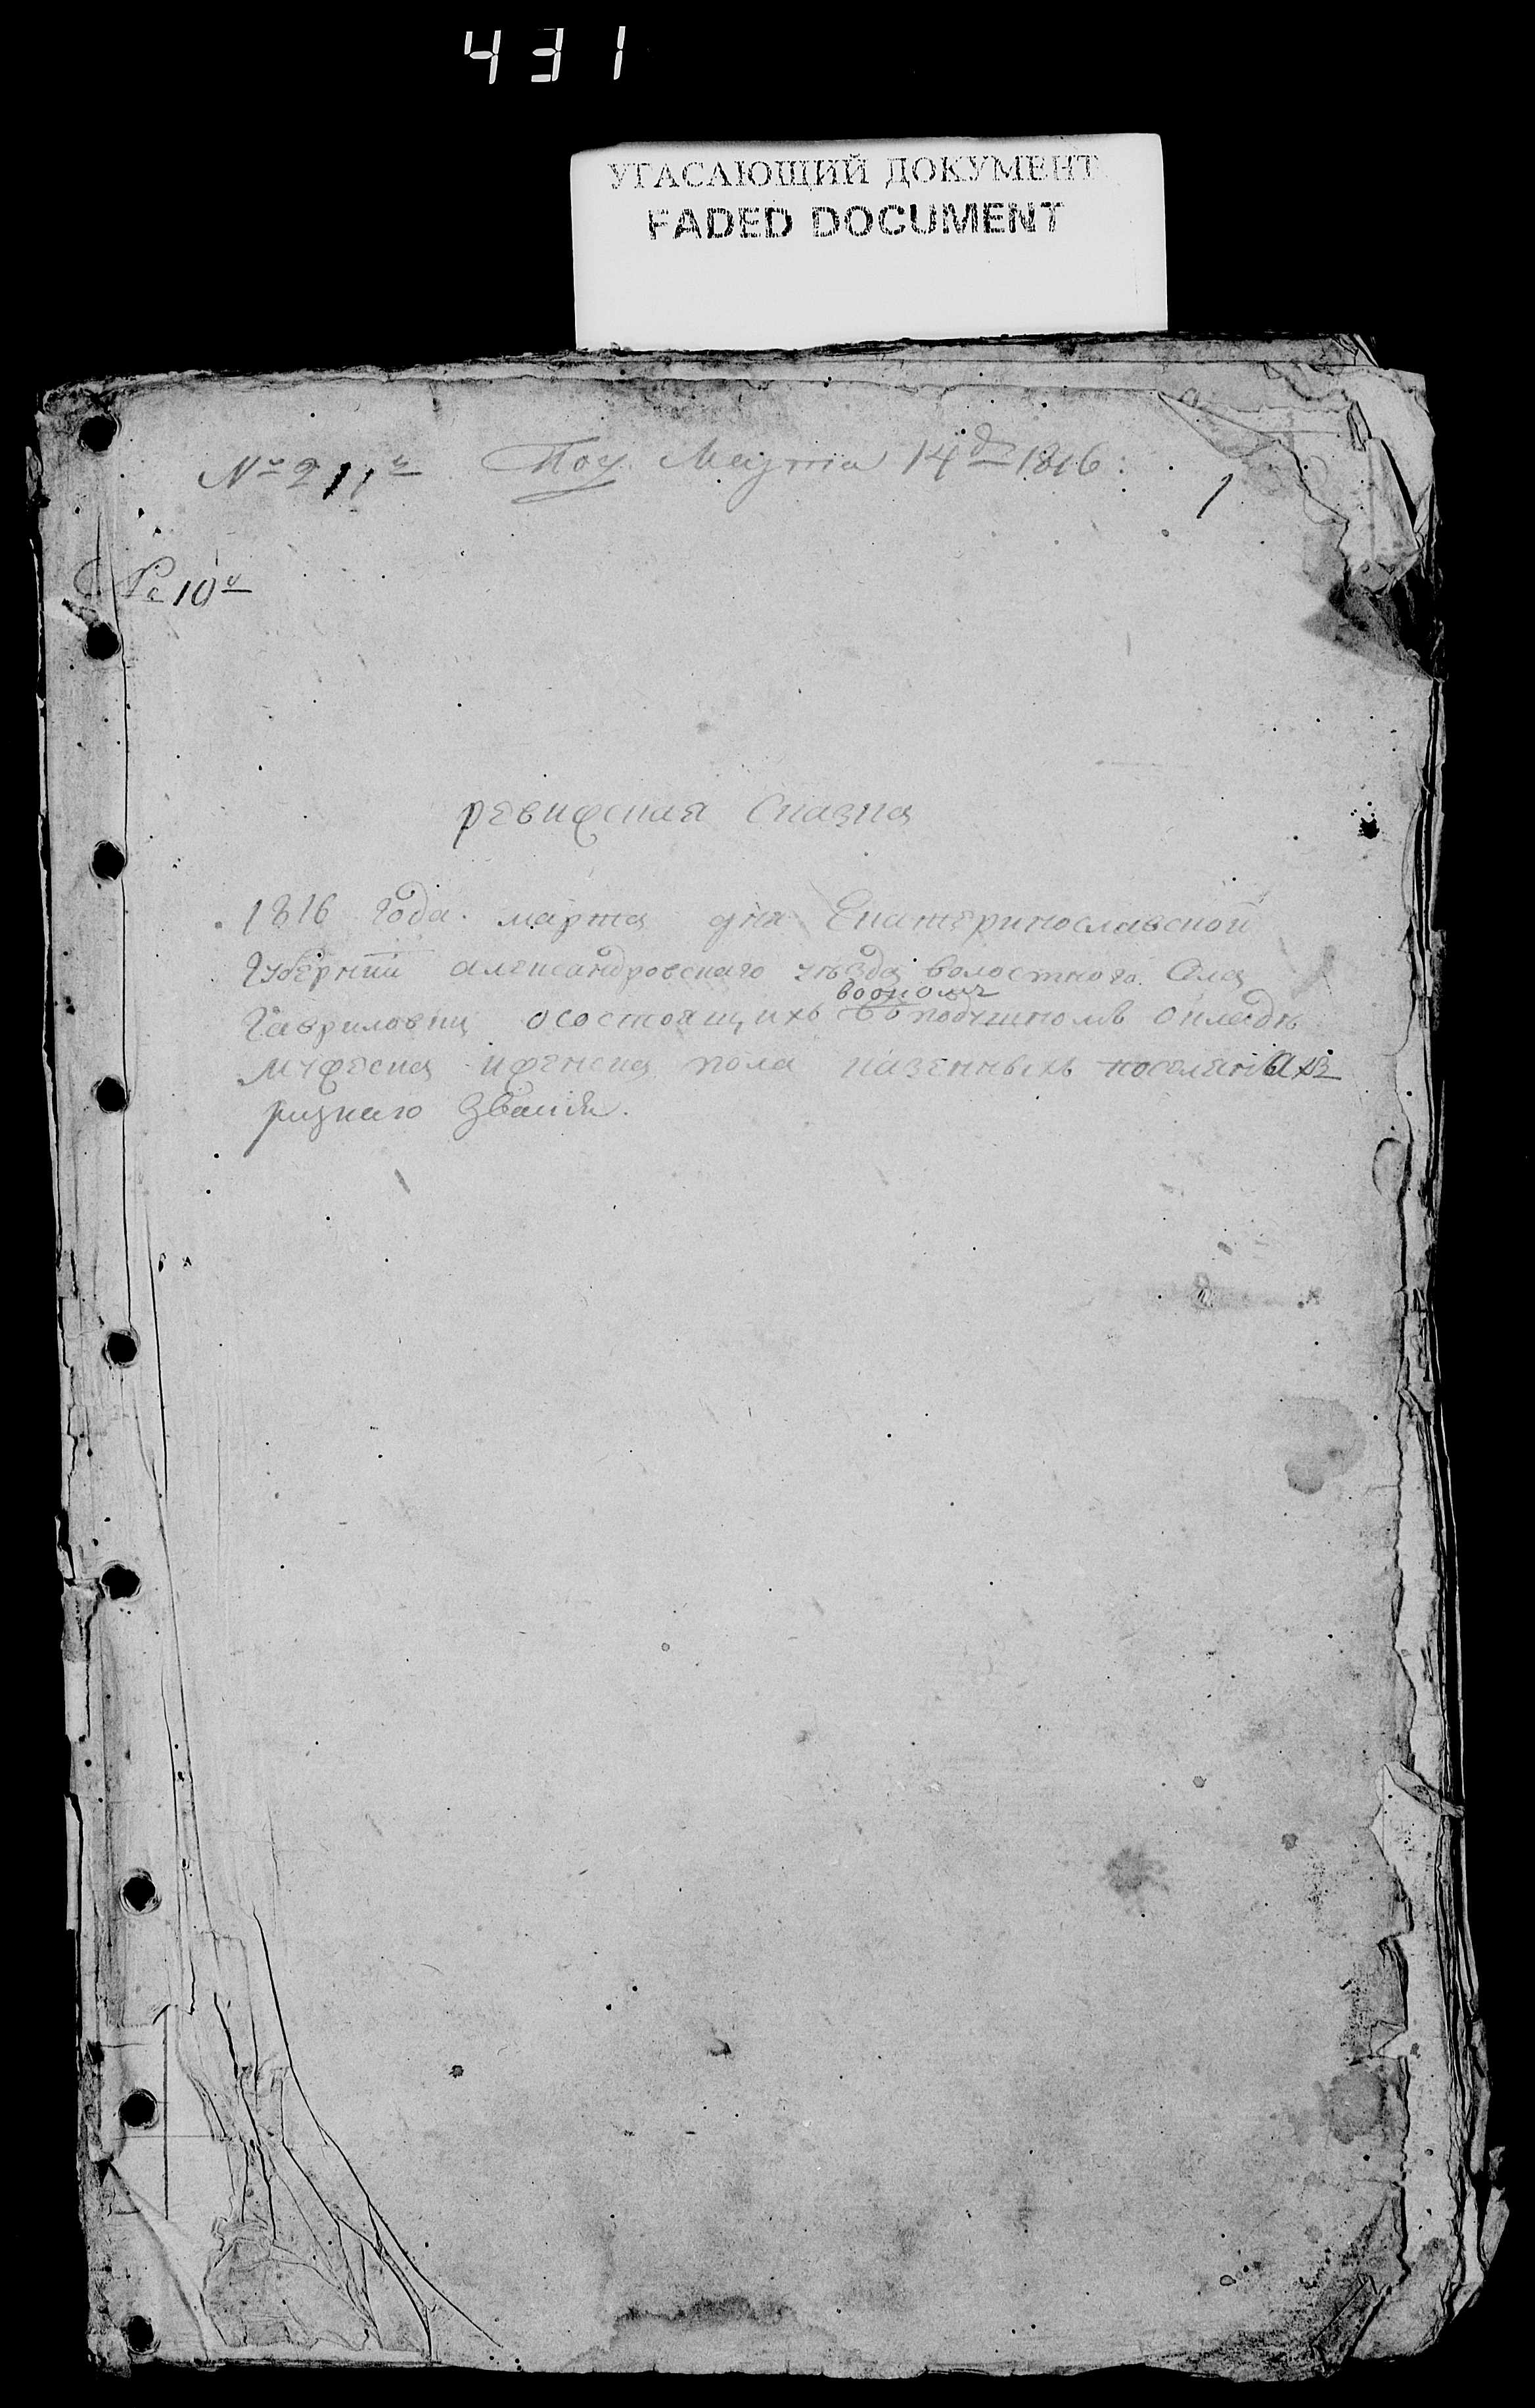 431
УГАСАЮЩИЙ ДОКУМЕНТ
FADED DOCUMENT
№ 211 Пол. Марта 14 д 1816:
1
№ 10
ревижская Сказка
1816 года. марта дня Екатеринославской
Губернии александровскаго уезда волостного Села
Гавриловки осостоящихъ
въ подушномъ окладе
мужеска ифенска пола казенныхъ поселянахъ
разнаго Звания.